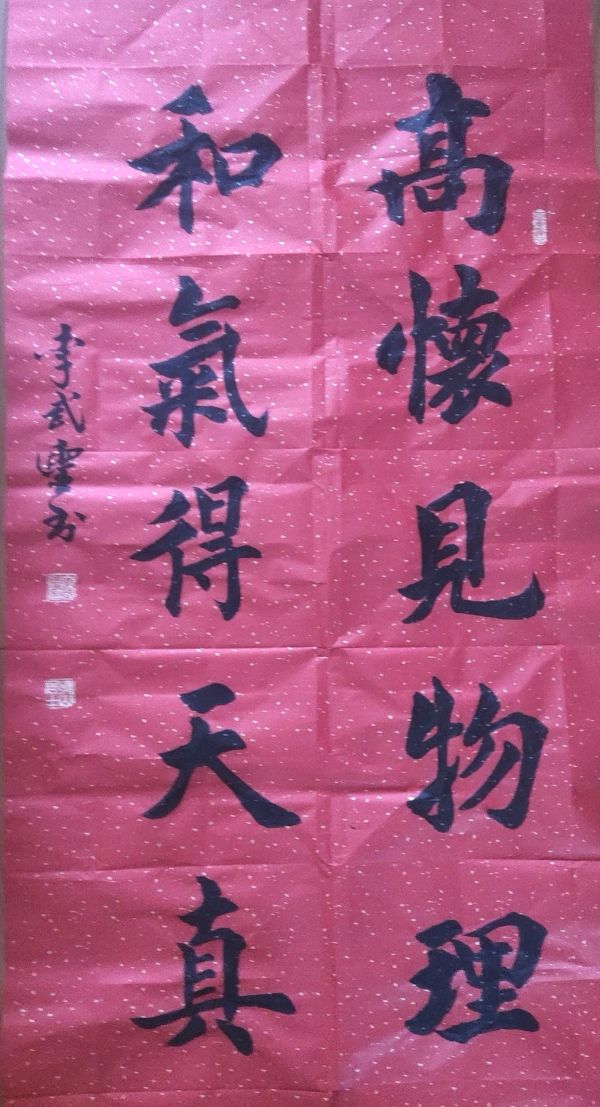 高懷見物理
和氣得天真
李武靈书